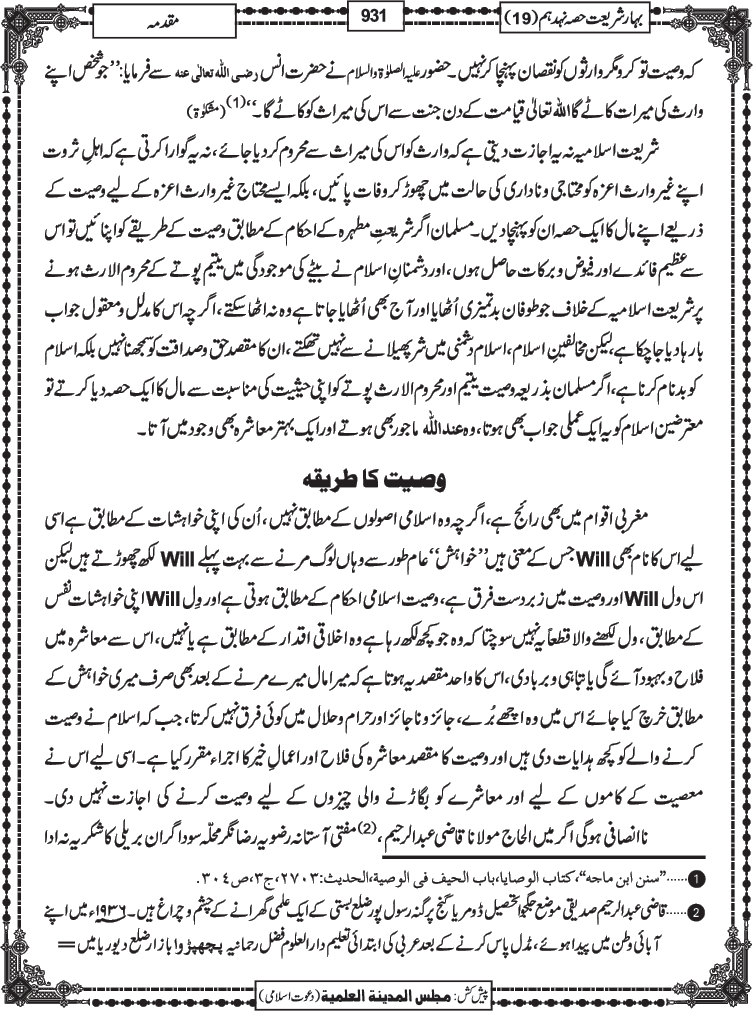 بہار شریعت حصہ نہدہم (19)
931
مقدمہ
کہ وصیت تو کرو مگر وارثوں کو نقصان پہنچا کر نہیں۔ حضور علیہ الصلوٰۃ والسلام نے حضرت انس رضی اللہ تعالیٰ عنہ سے فرمایا: ’’جو شخص اپنے
وارث کی میراث کاٹے گا اللہ تعالیٰ قیامت کے دن جنت سے اس کی میراث کو کاٹے گا۔‘‘ (1) (مشکوٰۃ)
شریعت اسلامیہ نہ یہ اجازت دیتی ہے کہ وارث کو اس کی میراث سے محروم کر دیا جائے، نہ یہ گوارا کرتی ہے کہ اہلِ ثروت
اپنے غیر وارث اعزہ کو محتاجی و ناداری کی حالت میں چھوڑ کر وفات پائیں، بلکہ ایسے محتاج غیر وارث اعزہ کے لیے وصیت کے
ذریعے اپنے مال کا ایک حصہ ان کو پہنچا دیں۔ مسلمان اگر شریعتِ مطہرہ کے احکام کے مطابق وصیت کے طریقے کو اپنائیں تو اس
سے عظیم فائدے اور فیوض و برکات حاصل ہوں، اور دشمنانِ اسلام نے بیٹے کی موجودگی میں یتیم پوتے کے محروم الارث ہونے
پر شریعت اسلامیہ کے خلاف جو طوفان بدتمیزی اُٹھایا اور آج بھی اُٹھایا جاتا ہے وہ نہ اٹھا سکتے، اگرچہ اس کا مدلل و معقول جواب
بارہا دیا جا چکا ہے، لیکن مخالفینِ اسلام، اسلام دشمنی میں شر پھیلانے سے نہیں تھکتے، ان کا مقصد حق و صداقت کو سمجھنا نہیں بلکہ اسلام
کو بدنام کرنا ہے، اگر مسلمان بذریعہ وصیت یتیم اور محروم الارث پوتے کو اپنی حیثیت کی مناسبت سے مال کا ایک حصہ دیا کرتے تو
معترضین اسلام کو یہ ایک عملی جواب بھی ہوتا، وہ عند اللہ ماجور بھی ہوتے اور ایک بہتر معاشرہ بھی وجود میں آتا۔
وصیت کا طریقہ
مغربی اقوام میں بھی رائج ہے، اگرچہ وہ اسلامی اصولوں کے مطابق نہیں، اُن کی اپنی خواہشات کے مطابق ہے اسی
لیے اس کا نام بھی Will جس کے معنی ہیں ’’خواہش‘‘ عام طور سے وہاں لوگ مرنے سے بہت پہلے Will لکھ چھوڑتے ہیں لیکن
اس ول Will اور وصیت میں زبردست فرق ہے، وصیت اسلامی احکام کے مطابق ہوتی ہے اور وِل Will اپنی خواہشات نفس
کے مطابق، ول لکھنے والا قطعاً یہ نہیں سوچتا کہ وہ جو کچھ لکھ رہا ہے وہ اخلاقی اقدار کے مطابق ہے یا نہیں، اس سے معاشرہ میں
فلاح و بہبود آئے گی یا تباہی و بربادی، اس کا واحد مقصد یہ ہوتا ہے کہ میرا مال میرے مرنے کے بعد بھی صرف میری خواہش کے
مطابق خرچ کیا جائے اس میں وہ اچھے بُرے، جائز و ناجائز اور حرام و حلال میں کوئی فرق نہیں کرتا، جب کہ اسلام نے وصیت
کرنے والے کو کچھ ہدایات دی ہیں اور وصیت کا مقصد معاشرہ کی فلاح اور اعمالِ خیر کا اجراء مقرر کیا ہے۔ اسی لیے اس نے
معصیت کے کاموں کے لیے اور معاشرے کو بگاڑنے والی چیزوں کے لیے وصیت کرنے کی اجازت نہیں دی۔
ناانصافی ہوگی اگر میں الحاج مولانا قاضی عبدالرحیم، (2) مفتی آستانہ رضویہ رضا نگر محلّہ سوداگران بریلی کا شکریہ نہ ادا
1 ......’’سنن ابن ماجہ‘‘، کتاب الوصایا، باب الحیف فی الوصیة، الحدیث: ۲۷۰۳، ج۳، ص۳۰۴.
2 ......قاضی عبدالرحیم صدیقی موضع جگجوا تحصیل ڈومریا گنج پرگنہ رسول پور ضلع بستی کے ایک علمی گھرانے کے چشم و چراغ ہیں۔ ۱۹۳۶ء میں اپنے
آبائی وطن میں پیدا ہوئے، مڈل پاس کرنے کے بعد عربی کی ابتدائی تعلیم دارالعلوم فضل رحمانیہ پچھپڑوا بازار ضلع دیوریا میں =
پیش کش: مجلس المدینة العلمیة (دعوت اسلامی)